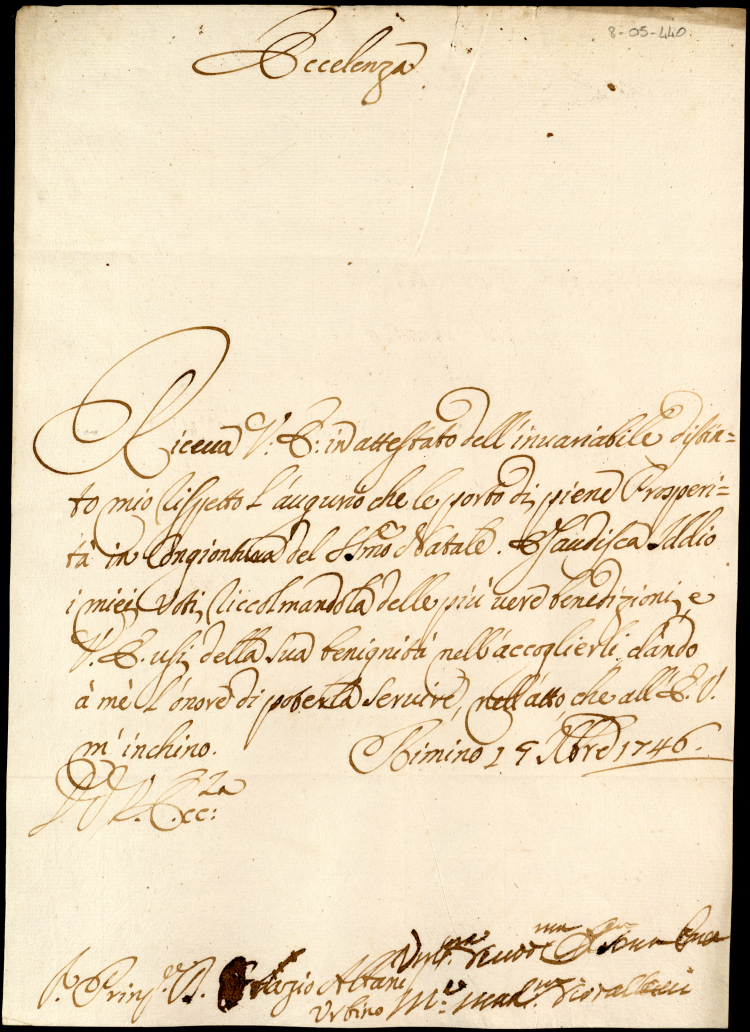 8-05-440
Eccelenza
Riceua V. E: in attestato dell'inuariabile distin=
to mio rispetto l'augurio che le porto di piene Prosperi=
tà in Congiontura del SSmo Natale. Esaudisca Iddio
i miei Voti, riccolmandola delle più vere benedizioni, e
V. E. usi della sua benignità nell'accoglierli, dando
à mè l'onore di poterla seruire, nell'atto che all'E. V.
m'inchino. Rimino 15 Xbre 1746.
D. V. Ecc:za
Sr. Prinpe. D. Orazio Albani
Urbino